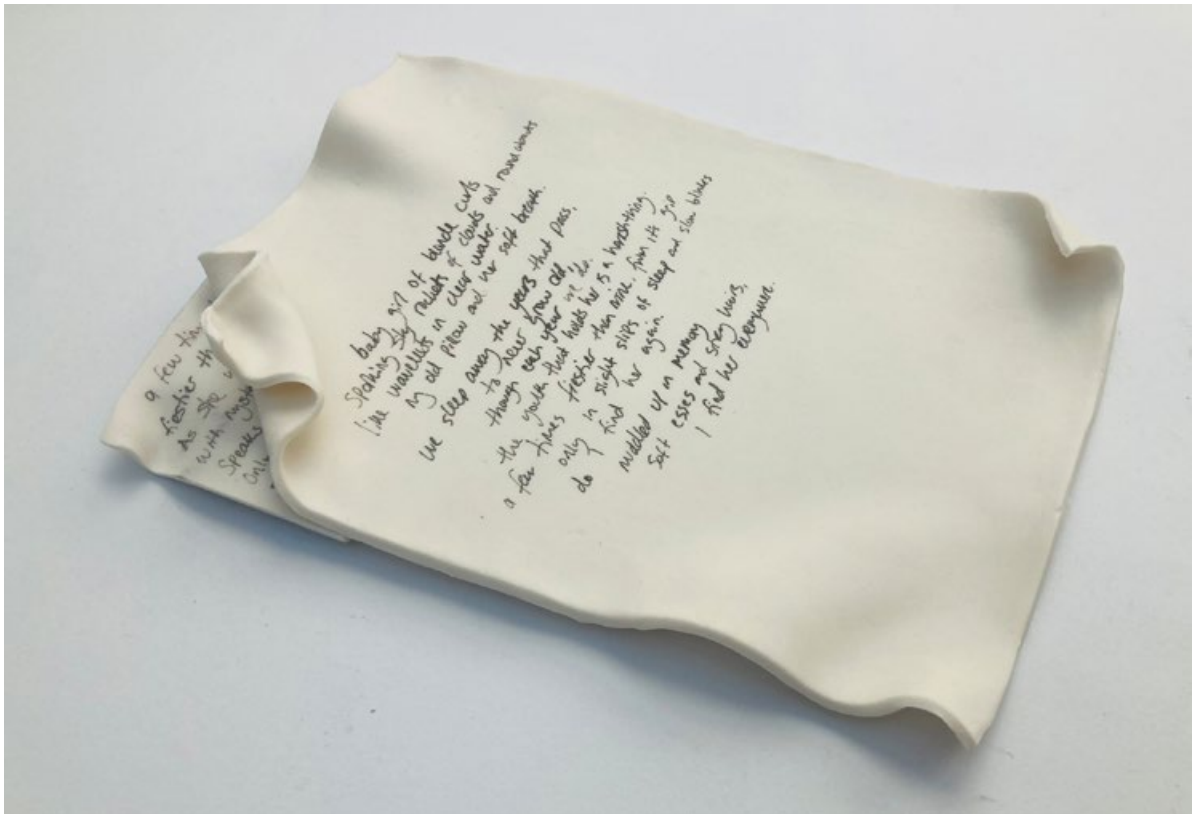 baby girl of blonde curls
Speaking sky rackets of clouds and roundabouts
like wavelets in clear water.
My old pillow and her soft breath.
We sleep away the years that pass,
to never grow old,
though each year we do.
the youth that holds her is a harsh thing.
a few times frestier than mine, firm it's grip
only in slight slips of sleep and slow blinks
do I find her again.
muddled up in memory
Soft esses and stray hairs,
I find her everywhere.
a few tim
fiestier th
As she
with mysel
Speaks
only